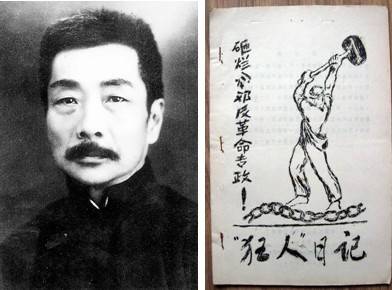 砸烂反革命专政！
"狂人"日记